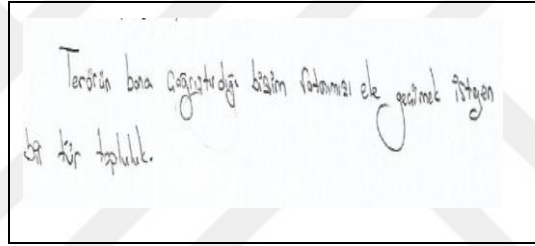 Terörün bana çağrıştırdığı bizim Vatanımızı ele geçilmek isteyen
bir tür topluluk.